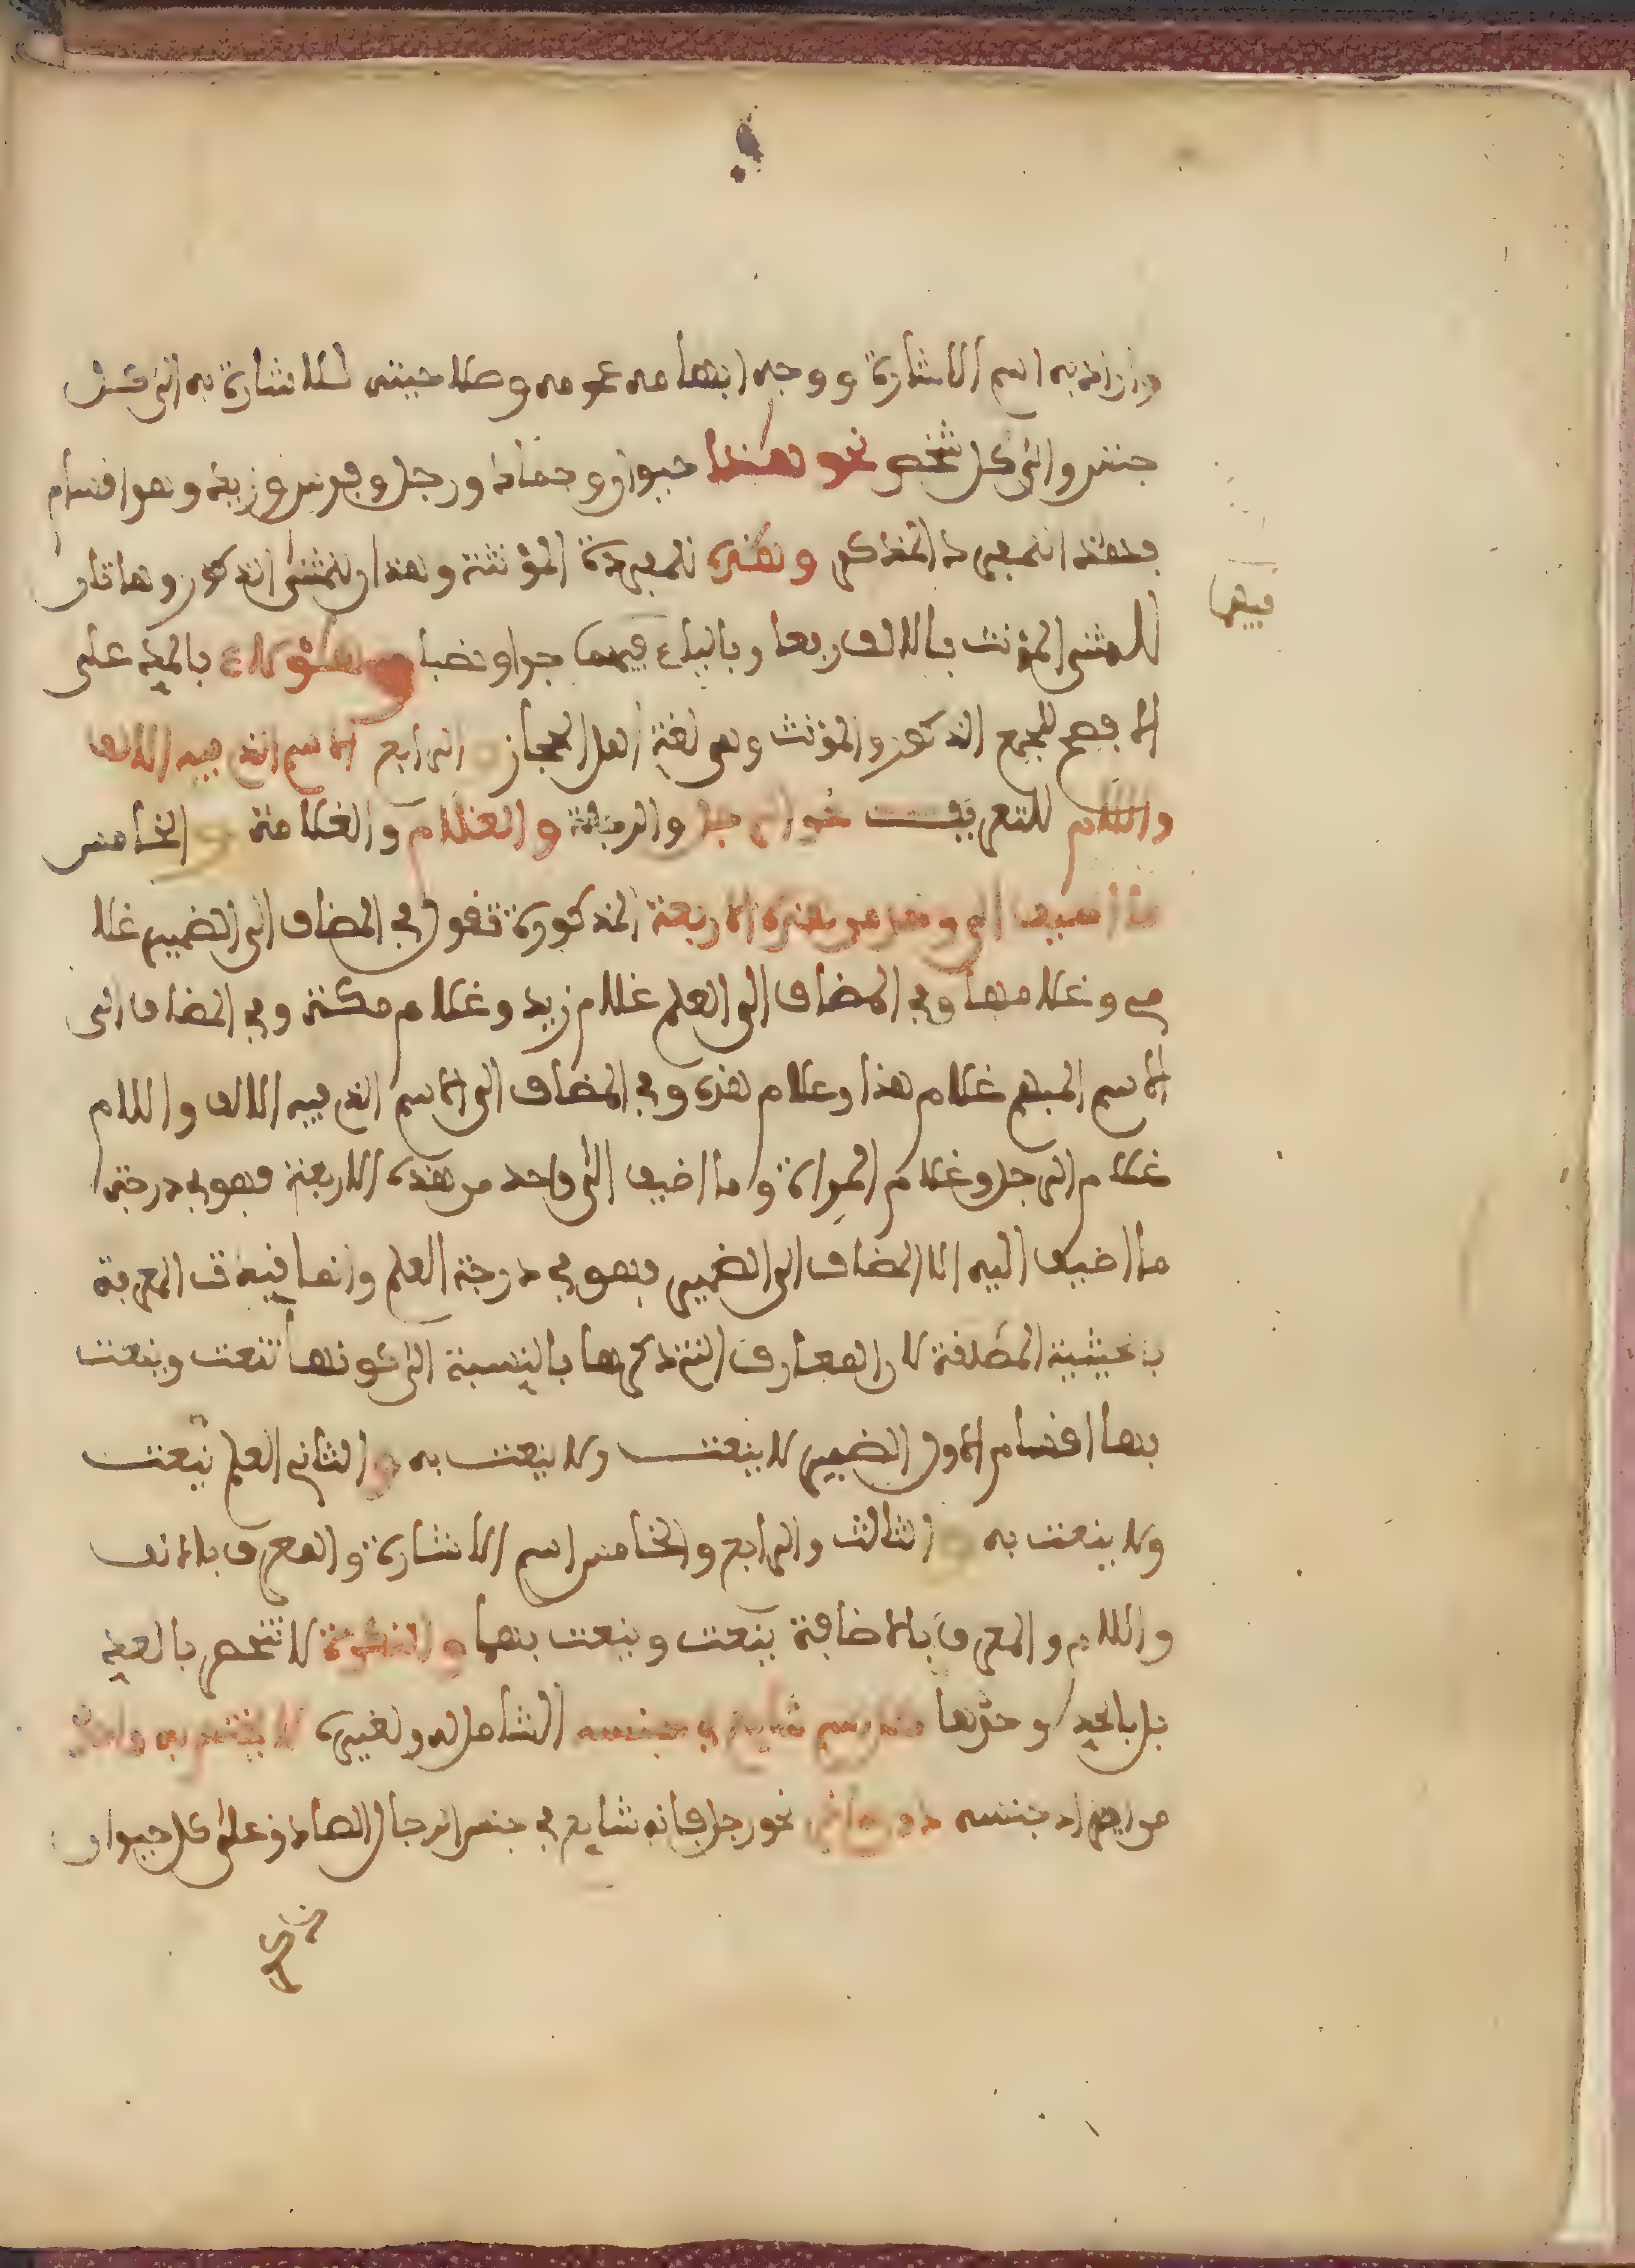 وأراد به اسم الاشارة ووجه ابهامه عمومه وصلاحيته للاشارة به الى كل
جنس والى كل شخص نحو هذا حيوان وجماد ورجل وفرس وزيد وهو اقسام
فهذا للمفرد المذكر وهذه للمفردة المؤنثة وهذان للمثنى المذكر وهاتان
للمثنى المؤنث بالالف رفعا وبالياء فيهما جرا ونصبا وهؤلاء بالمد على
فيهما
الافصح لجمع المذكور والمؤنث وهى لغة أهل الحجاز والرابع الاسم الذي فيه الالف
واللام للتعريف نحو الرجل والرجلة والغلام والغلامة والخامس
ما اضيف الى واحد من هذه الاربعة المذكورة تقول في المضاف الى الضمير غلا
مى وغلامها وفي المضاف الى العلم غلام زيد وغلام مكة وفي المضاف الى
الاسم المبهم غلام هذا وغلام هذه وفي المضاف الى الاسم الذي فيه الالف واللام
غلام الرجل وغلام المراة وما اضيف الى واحد من هذه الاربعة فهو في درجة
ما اضيف اليه الا المضاف الى الضمير فهو في درجة العلم وانما المعرفة
بالحيثية المطلقة لان المعارف التي ذكرها بالنسبة الى كونها تنعت وينعت
بها اقسام الاول الضمير لا ينعت ولا ينعت به والثاني العلم ينعت
ولا ينعت به والثالث والرابع والخامس اسم الاشارة والمعرف بالالف
واللام والمعرف بالاضافة ينعت وينعت بها والنكرة لا تنحصر بالعد
بل بالحد وحدها كل اسم شايع في جنسه الشامل له ولغيره لا يختص به واحد
من افراد جنسه دون اخر نحو رجل فانه شايع في جنس الرجال الصادق على كل حيوان